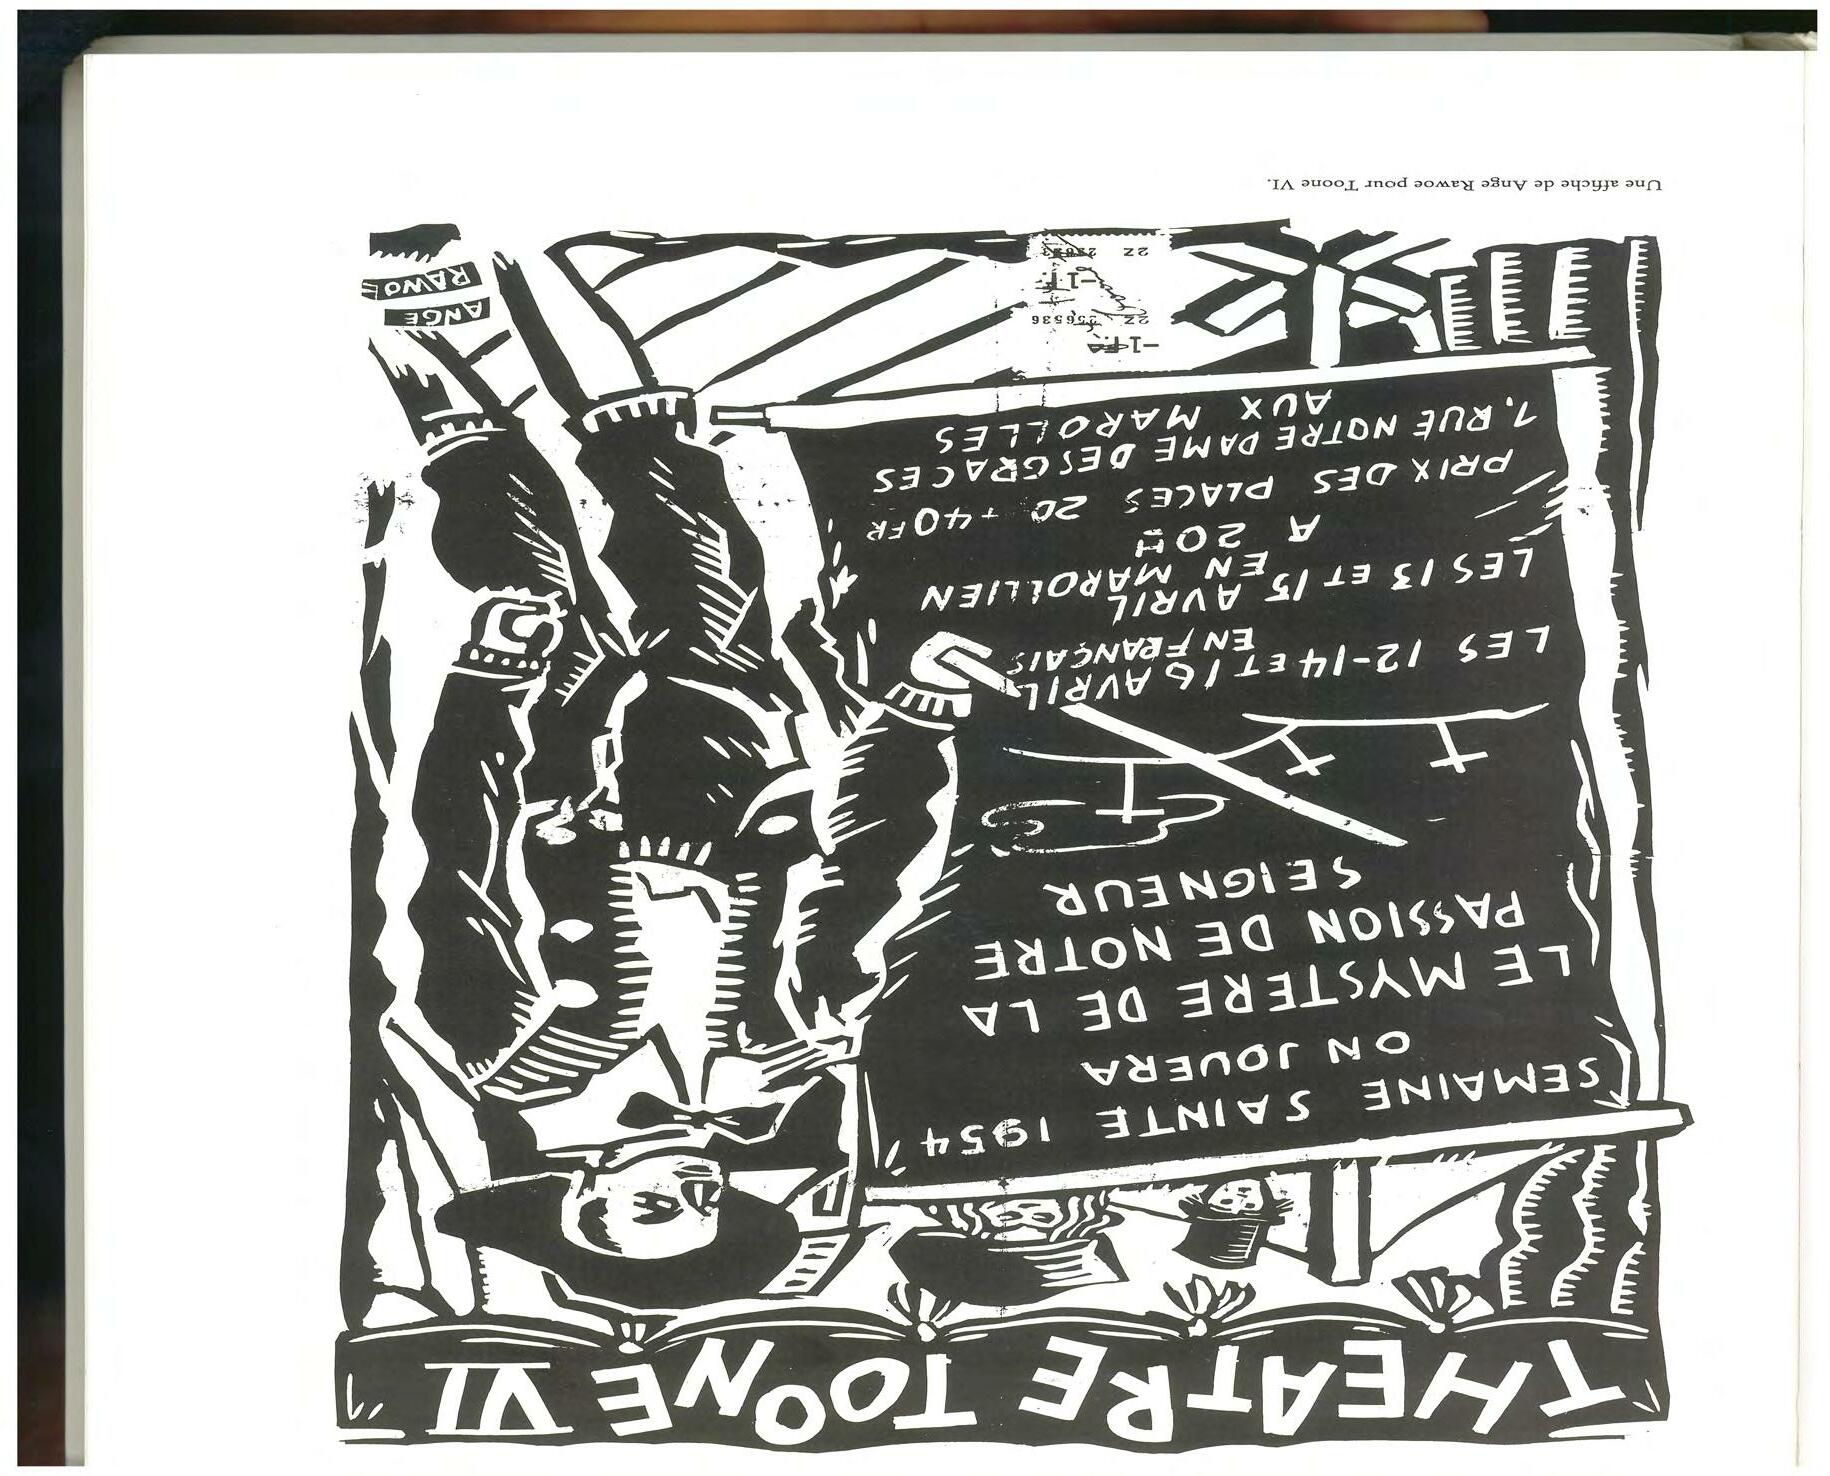 THEATRE TOONE VI
SEMAINE SAINTE 1954
ON JOUERA
LE MYSTERE DE LA
PASSION DE NOTRE
SEIGNEUR
LES 12-14 ET 16 AVRIL
EN FRANÇAIS
LES 13 ET 15 AVRIL
EN MAROLLIEN
A 20H
PRIX DES PLACES 20 + 40 FR
1, RUE NOTRE DAME DES GRACES
AUX MAROLLES
-1F
2Z 256536
-1F
2Z
ANGE
RAWOE
Une affiche de Ange Rawoe pour Toone VI.